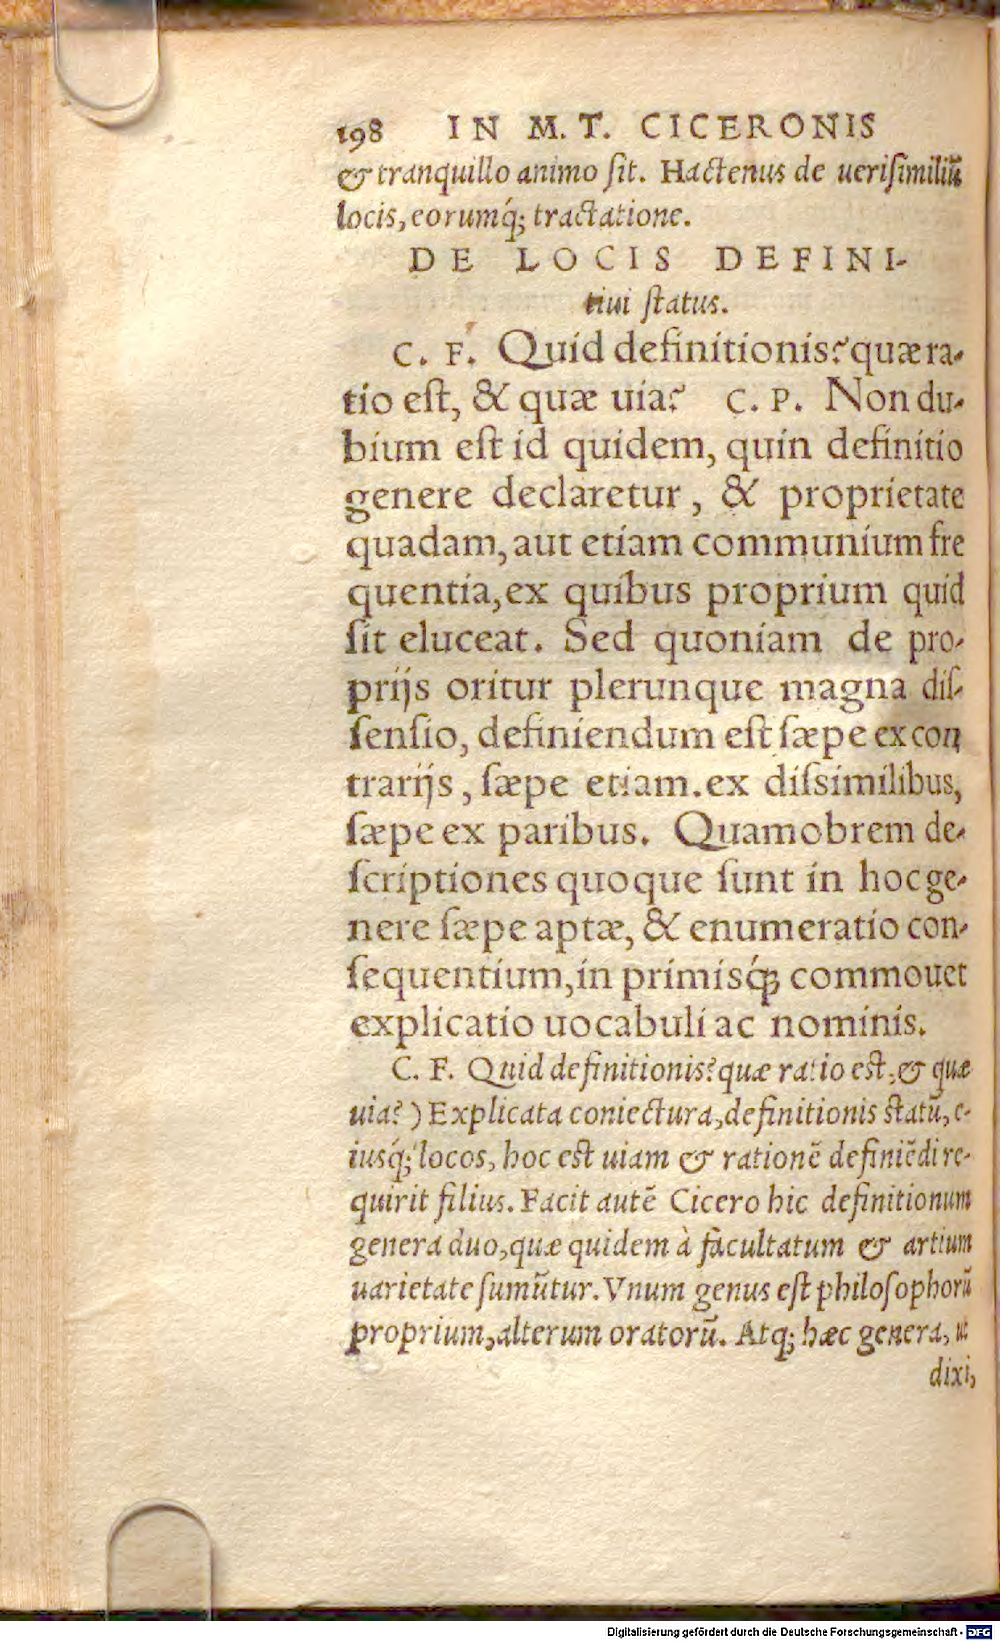 198 IN M. T. CICERONIS
& tranquillo animo ſit. Hactenus de ueriſimiliũ
locis, eorumq́; tractatione.
DE LOCIS DEFINI-
tiui ſtatus.
C. F. Quid definitionis? quæ ra-
tio eſt, & quæ uia? C. P. Non du-
bium eſt id quidem, quin definitio
genere declaretur, & proprietate
quadam, aut etiam communium fre
quentia, ex quibus proprium quid
ſit eluceat. Sed quoniam de pro-
prijs oritur plerunque magna diſ-
ſenſio, definiendum eſt ſæpe ex con
trarijs, ſæpe etiam. ex diſsimilibus,
ſæpe ex paribus. Quamobrem de-
ſcriptiones quoque ſunt in hoc ge-
nere ſæpe aptæ, & enumeratio con-
ſequentium, in primisq́; commouet
explicatio uocabuli ac nominis.
C. F. Quid definitionis? quæ ratio eſt, & quæ
uia? ) Explicata coniectura, definitionis ſtatũ, e-
iusq́; locos, hoc eſt uiam & rationẽ definiẽdi re-
quirit filius. Facit autẽ Cicero hic definitionum
genera duo, quæ quidem à facultatum & artium
uarietate ſumũtur. Vnum genus eſt philoſophorũ
proprium, alterum oratorũ. Atq; hæc genera, ut
dixi,
Digitalisierung gefördert durch die Deutsche Forschungsgemeinschaft - DFG